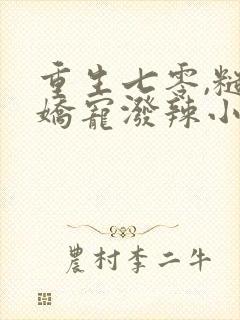 重生七零,糙
嬌寵潑辣小
農村李二牛